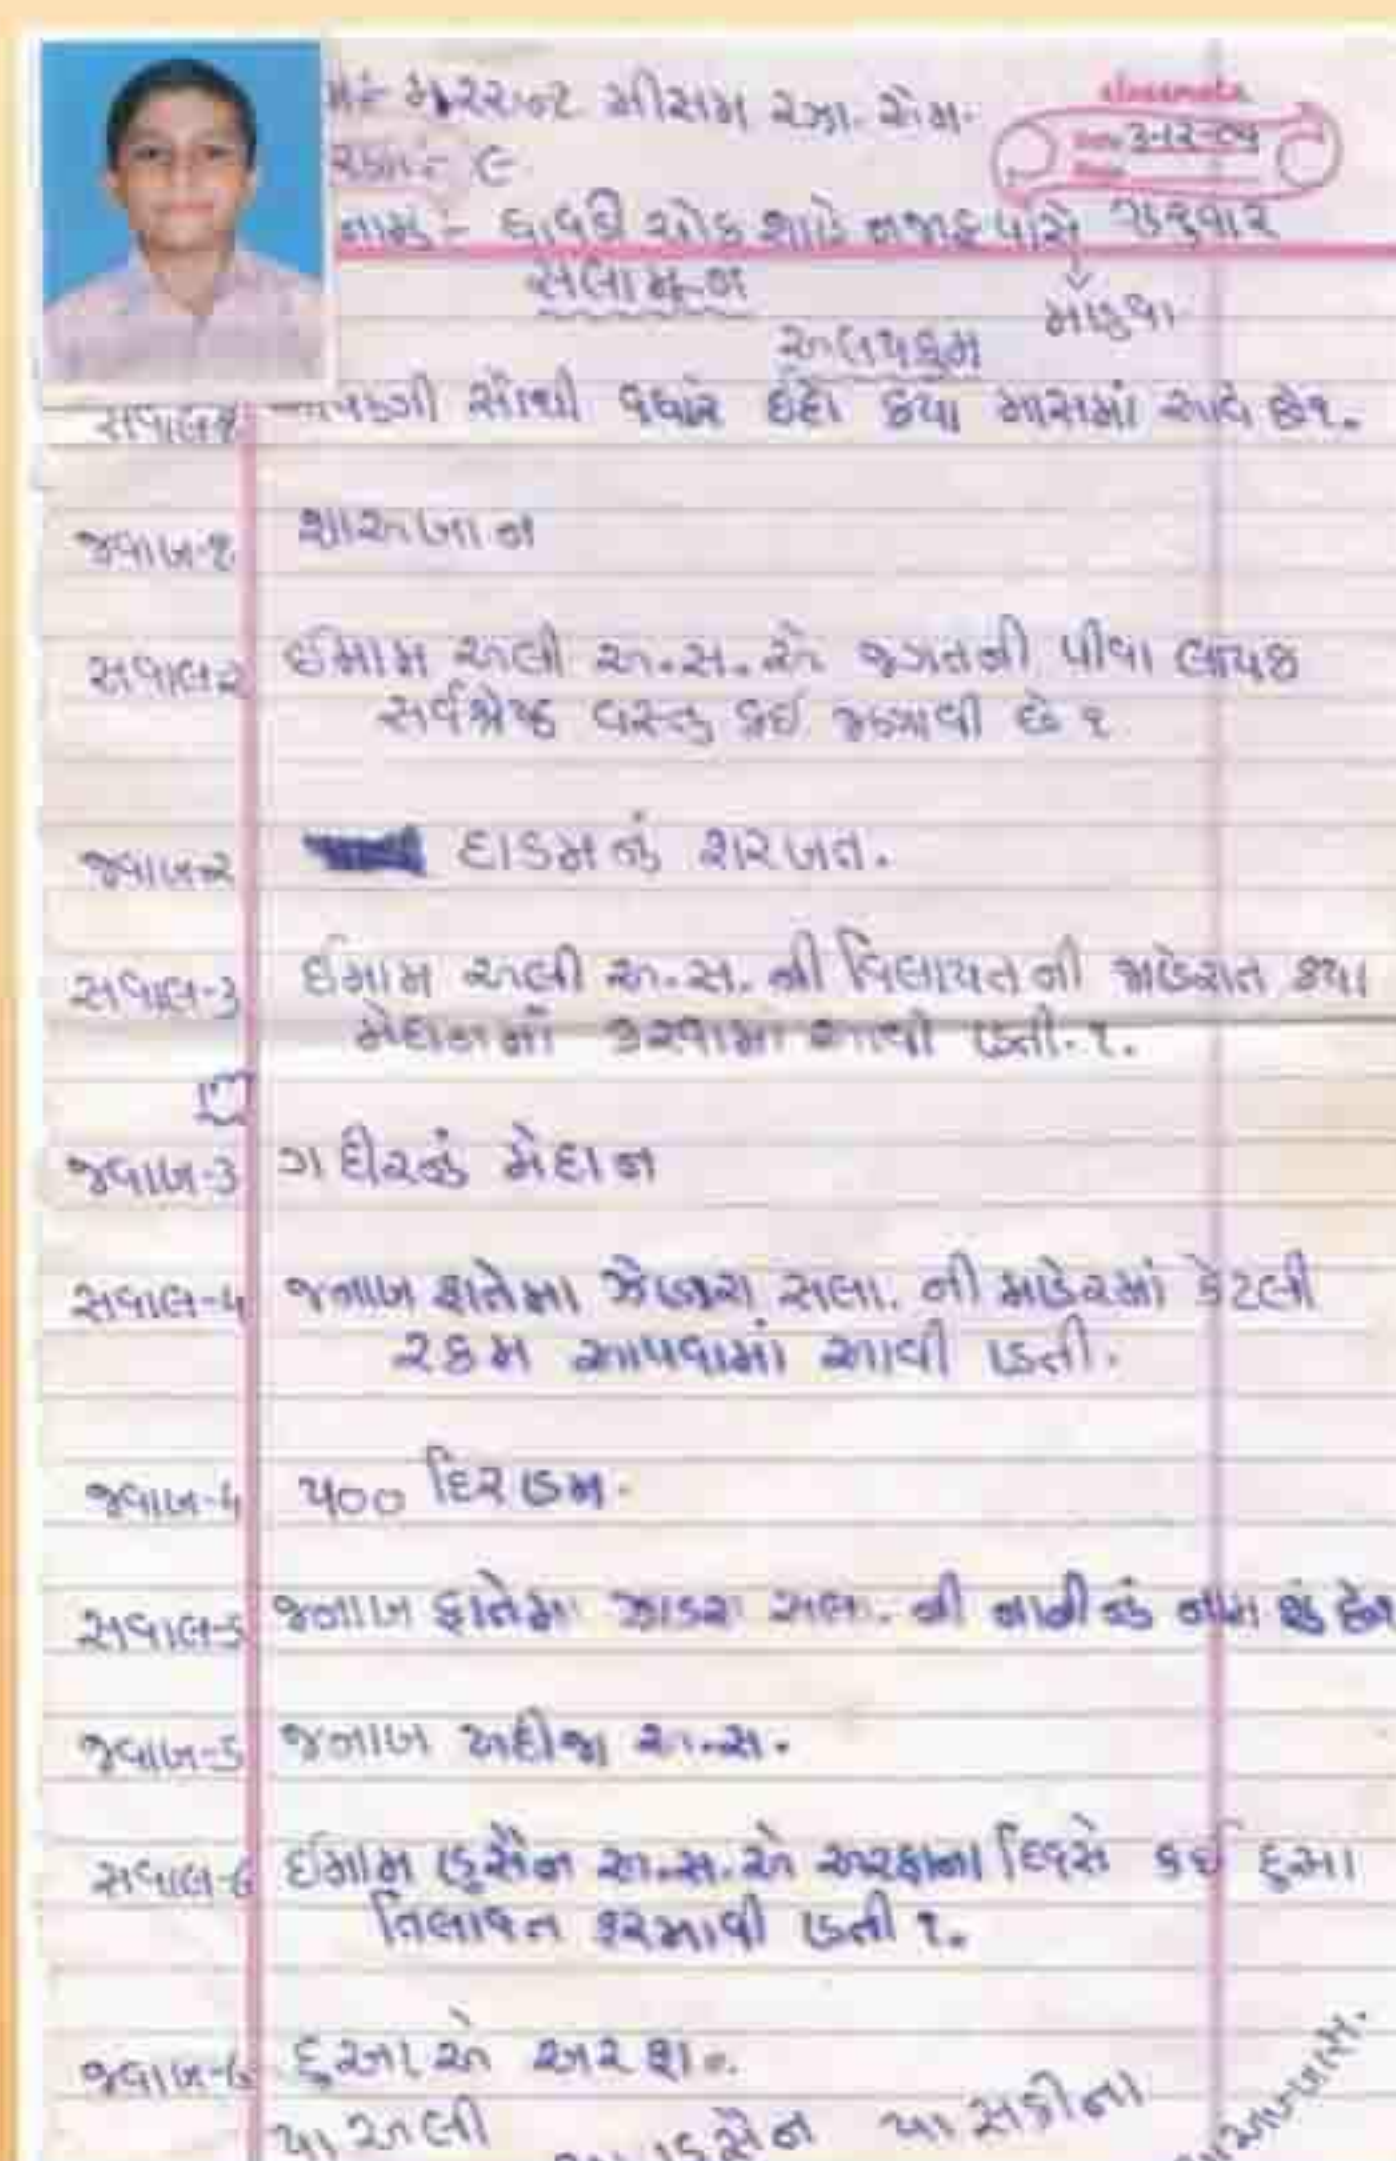 મરચન્ટ મીસમ રઝા. એમ.
classmate
Date 3-12-09
Page
૯
નામું :- હાવડી ચોક શાહે નજાફ પાસે મહુવાર
માંડવા
સલામુન
અલયકુમ
સૌથી વધારે ઇદો કયા માસમાં આવે છે?.
જવાબ-૧ શાઅબાન
સવાલ-૨ ઈમામ અલી અ.સ.એ જગતની પીવા લાયક
સર્વશ્રેષ્ઠ વસ્તુ કઈ જણાવી છે ?
જવાબ-૨ દાડમનું શરબત.
સવાલ-૩ ઈમામ અલી અ.સ. ની વિલાયતની જાહેરાત કયા
મેદાનમાં કરવામાં આવી હતી.?.
જવાબ-૩ ગદીરનું મેદાન
સવાલ-૪ જનાબ ફાતેમા ઝેહરા સલા. ની માહેરમાં કેટલી
રકમ આપવામાં આવી હતી.
જવાબ-૪ ૫૦૦ દિરહમ.
સવાલ-૫ જનાબ ફાતેમા ઝાહરા સલા. ની નાની નું નામ શું છે?
જવાબ-૫ જનાબ ખદીજા અ.સ.
સવાલ-૬ ઈમામ હુસૈન અ.સ.એ અરફાના દિવસે કઈ દુઆ
તિલાવત ફરમાવી હતી ?.
જવાબ-૬ દુઆ એ અરફા.
યા અલી હુસૈન યા સકીના